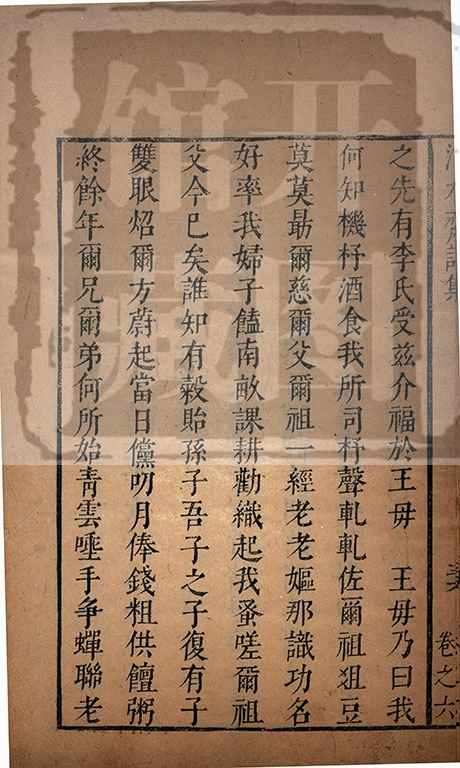 卷之六
之先有李氏受茲介福於王毋　王毋乃曰我
何知機杼酒食我所司杼聲軋軋佐爾祖俎豆
莫莫勗爾慈爾父爾祖一經老老嫗那識功名
好率我婦子饁南畝課耕勸織起我蚤嗟爾祖
父今已矣誰知有穀貽孫子吾子之子復有子
雙眼炤爾方蔚起當日儻叨月俸錢粗供饘粥
終餘年爾兄爾弟何所始青雲唾手争蟬聯老